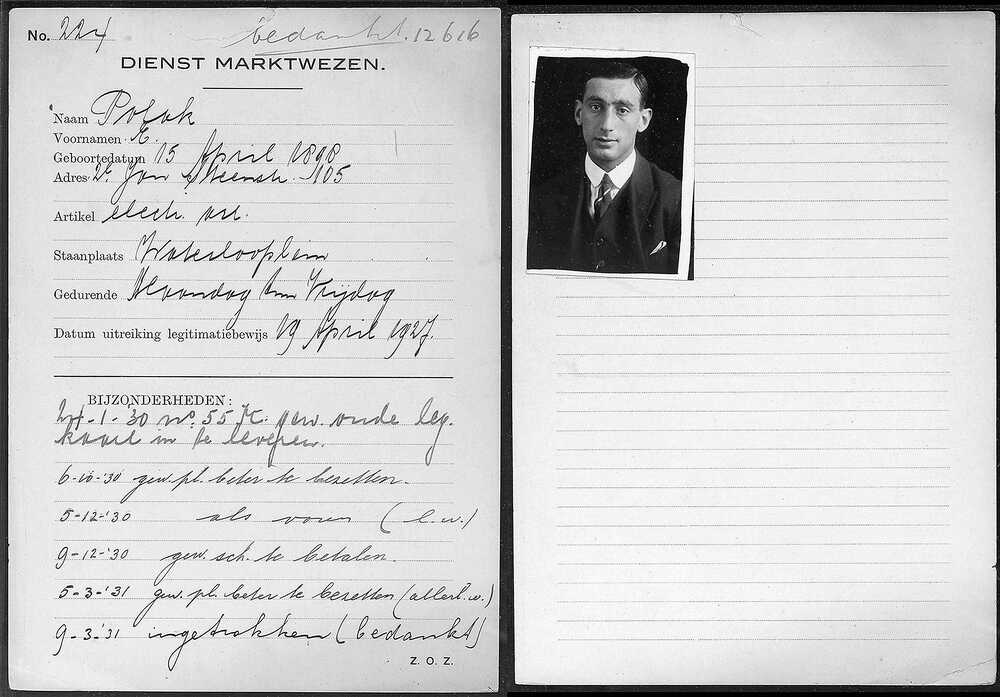 No. 224 bedankt. 12616
DIENST MARKTWEZEN.
Naam Polak
Voornamen E.
Geboortedatum 15 April 1898
Adres 2e Jan Steenstr. 105
Artikel electr. art.
Staanplaats Waterlooplein
Gedurende Maandag t/m Vrijdag
Datum uitreiking legitimatiebewijs 19 April 1927.
BIJZONDERHEDEN:
24-1-'30 no. 55 K. gew. oude leg.
kaart in te leveren.
6-10-'30 gew. pl. beter te bezetten.
5-12-'30 als voren (l.w.)
9-12-'30 gew. sch. te betalen.
5-3-'31 gew. pl. beter te bezetten (allerl. w.)
9-3-'31 ingetrokken (bedankt)
Z. O. Z.